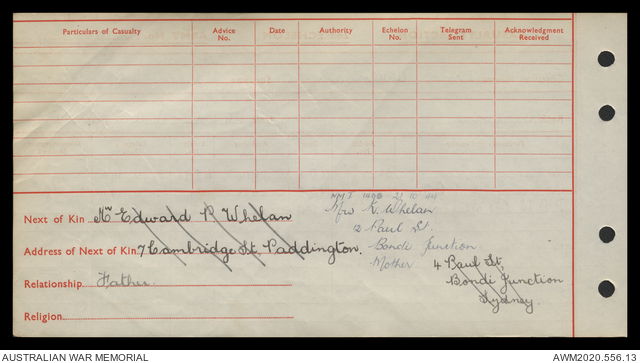 Particulars of Casualty Advice No. Date Authority Echelon No. Telegram Sent Acknowledgment Received
Next of Kin Mr Edward P Whelan
Address of Next of Kin 7 Cambridge St. Paddington.
Relationship Father.
Religion
Mrs K. Whelan
12 Paul St.
Bondi Junction
Mother
4 Paul St.
Bondi Junction
Sydney.
AUSTRALIAN WAR MEMORIAL
AWM2020.556.13